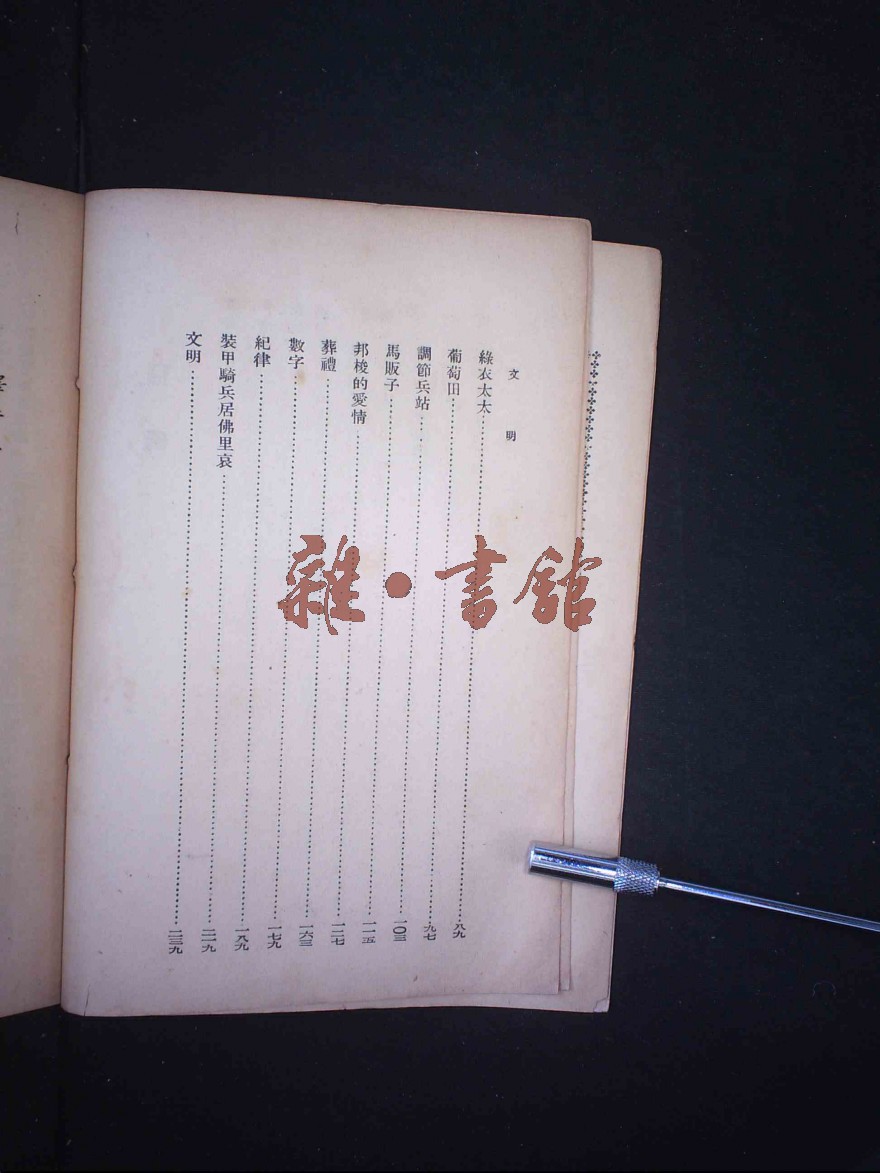 文明
綠衣太太……八九
葡萄田……九七
調節兵站……一〇三
馬販子……一一五
邦梭的愛情……一二七
葬禮……一六三
數字……一七九
紀律……一八九
裝甲騎兵居佛里哀……二一九
文明……二三九
雜·書館